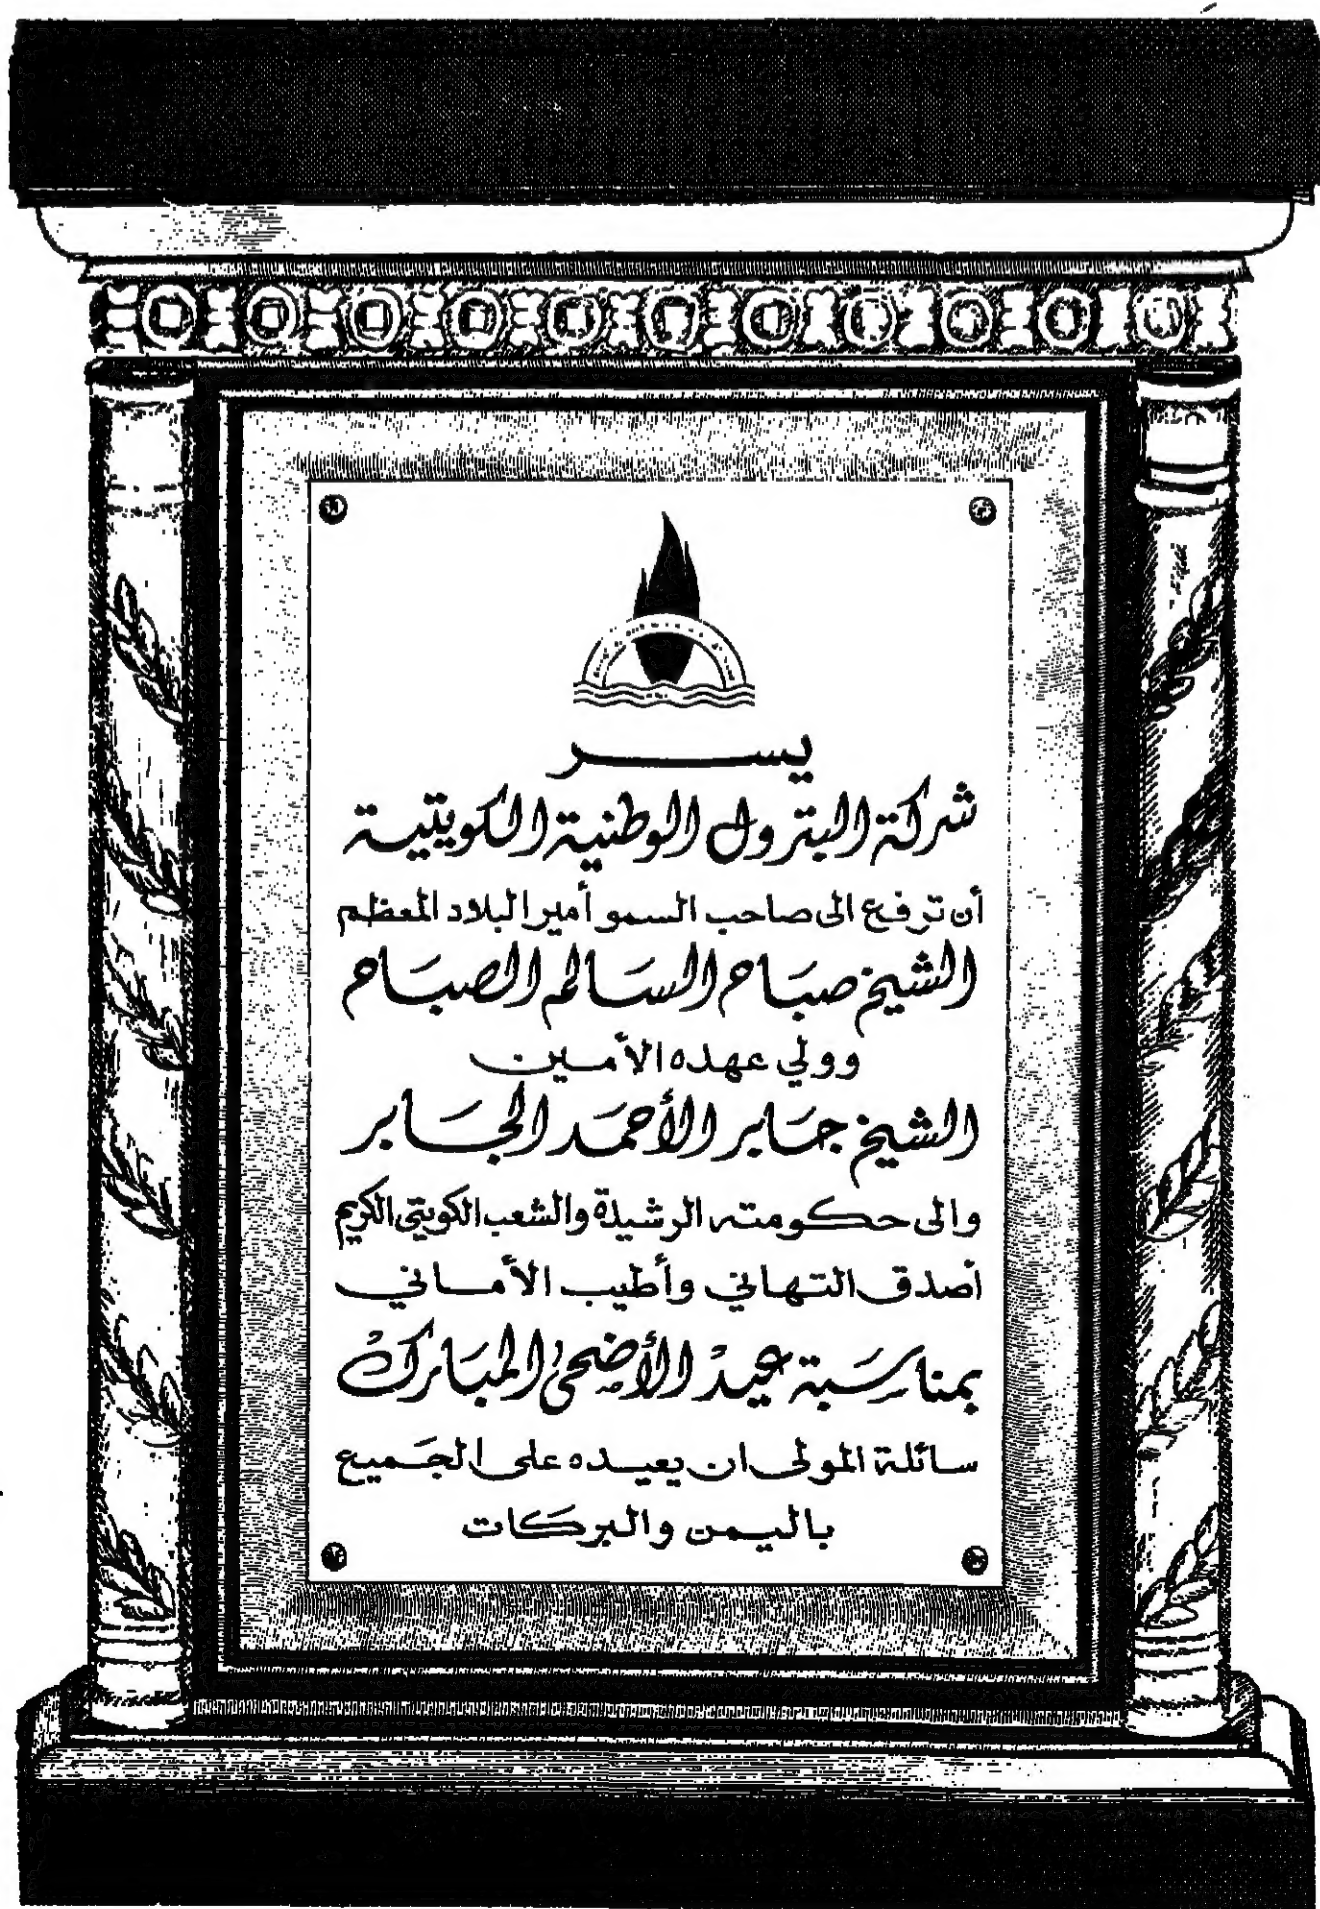 يسر
شركة البترول الوطنية الكويتية
أن ترفع الى صاحب السمو أمير البلاد المعظم
الشيخ صباح السالم الصباح
وولي عهده الأمين
الشيخ جابر الأحمد الجابر
والى حكومته الرشيدة والشعب الكويتي الكريم
أصدق التهاني وأطيب الأماني
بمناسبة عيد الأضحى المبارك
سائلة المولى ان يعيده على الجميع
باليمن والبركات